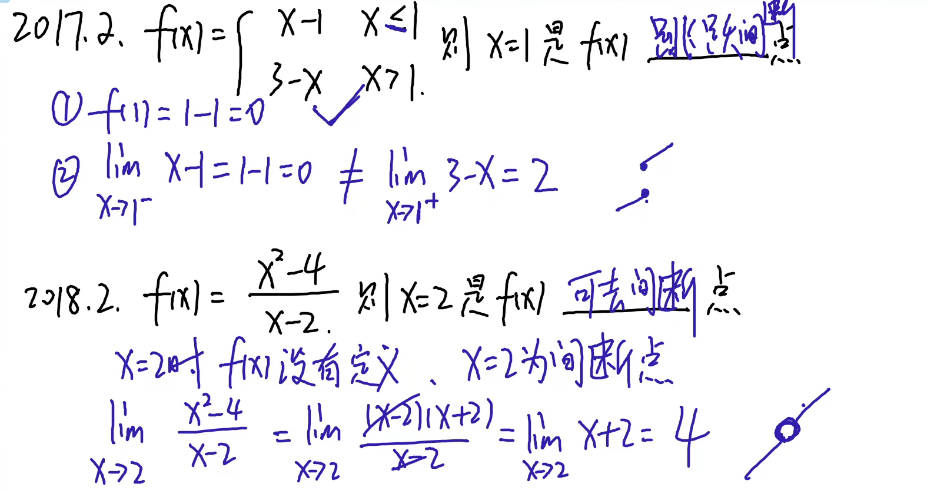 2017.2. f(x)={ x-1 x≤1 则 x=1 是 f(x) 跳跃间断点
3-x x>1.
① f(1)=1-1=0 ✓
② lim x→1⁻ x-1=1-1=0 ≠ lim x→1⁺ 3-x=2
2018.2. f(x)= (x²-4)/(x-2). 则 x=2 是 f(x) 可去间断点
x=2时 f(x)没有定义、x=2为间断点
lim x→2 (x²-4)/(x-2) = lim x→2 (x-2)(x+2)/(x-2) = lim x→2 x+2= 4